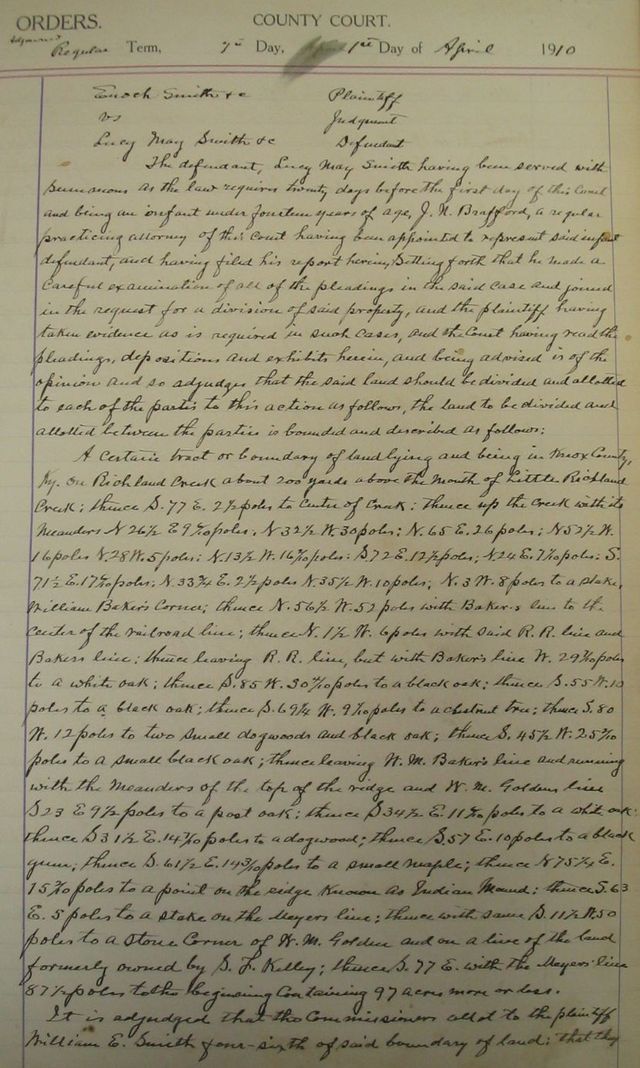 ORDERS. COUNTY COURT.
Regular Term, 7th Day, 1st Day of April 1910
Enoch Smith &c Plaintiff
vs Judgment
Lucy May Smith &c Defendant
The defendant, Lucy May Smith having been served with
summons as the law requires twenty days before the first day of this Court
and being an infant under fourteen years of age, J. N. Brafford, a regular
practicing attorney of this Court having been appointed to represent said infant
defendant, and having filed his report herein, Setting forth that he made a
careful examination of all of the pleadings in the said case and joined
in the request for a division of said property, and the plaintiff having
taken evidence as is required in such cases, and the Court having read the
pleadings, depositions and exhibits herein, and being advised is of the
opinion and so adjudges that the said land should be divided and allotted
to each of the parties to this action as follows, the land to be divided and
allotted between the parties is bounded and described as follows:
A certain tract or boundary of land lying and being in Knox County,
Ky. on Richland Creek about 200 yards above the mouth of Little Richland
Creek; thence S. 77 E. 2½ poles to center of Creek; thence up the creek with its
meanders N 26½ E 9 poles. N 32½ W. 30 poles; N. 65 E. 26 poles; N 52½ W.
16 poles N. 28 W. 5 poles; N. 13½ W. 16 poles; S 72 E. 12 poles; N 24 E. 7 poles: S.
71½ E. 17 poles; N. 33¾ E. 2½ poles N 35½ W. 10 poles; N. 3 W. 8 poles to a stake,
William Baker's Corner; thence N. 56½ W. 52 poles with Baker's line to the
center of the railroad line; thence N. 1½ W. 6 poles with said R. R. line and
Bakers line; thence leaving R. R. line, but with Baker's line W. 29 poles
to a white oak; thence S. 85 W. 30 poles to a black oak; thence S. 55 W. 10
poles to a black oak; thence S. 69¼ W. 9 poles to a chestnut tree; thence S. 80
W. 12 poles to two small dogwoods and black oak; thence S. 45½ W. 25
poles to a small black oak; thence leaving W. M. Baker's line and running
with the meanders of the top of the ridge and W. M. Goldens line
S 23 E 9½ poles to a post oak; thence S 34½ E. 11 poles to a white oak;
thence S 31½ E. 14 poles to a dogwood; thence S. 57 E. 10 poles to a black
gum; thence S. 61½ E. 14 poles to a small maple; thence N 75¼ E.
15 poles to a point on the ridge known as Indian Mound; thence S. 63
E. 5 poles to a stake on the Meyers line; thence with same S. 11½ W. 50
poles to a stone corner of W. M. Golden and on a line of the land
formerly owned by S. F. Kelley; thence S. 77 E. with the Meyers' line
87½ poles to the beginning Containing 97 acres more or less.
It is adjudged that the Commissioners allot to the plaintiff
William E. Smith four-sixth of said boundary of land; that they